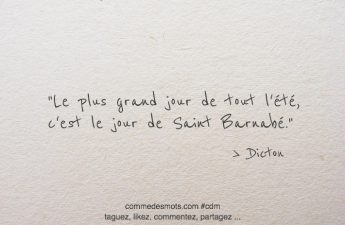 "Le plus grand jour de tout l'été,
c'est le jour de Saint Barnabé."
> Dicton
commedesmots.com #cdm
taguez, likez, commentez, partagez ...